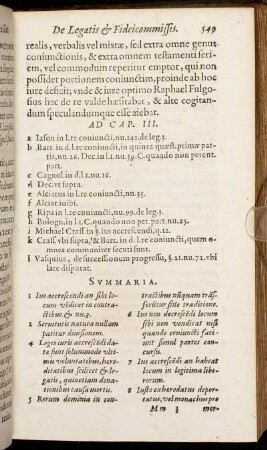 De Legatis & Fideicommissis. 549
realis, verbalis vel mixtæ, sed extra omne genus
coniunctionis, & extra omnem testamenti seriem,
vel commodum reperitur emptor, qui non
possidet portionem coniunctim, proinde ab hoc
iure deficit; vnde & iure optimo Raphael Fulgosius
hac de re valde hæsitabat, & alte cogitandum
speculandumque esse aiebat.
AD CAP. III.
a Iason in l. re coniuncti, nu. 142. de leg. 3.
b Bart. in d. l. re coniuncti, in quinta quæst. primæ partis,
nu. 26. Dec. in l. 1. nu. 39. C. quando non petent.
part.
c Cagnol. in d. l. 1. nu. 16.
d Dec. vt supra.
e Alciatus in l. re coniuncti, nu. 35.
f Alciat. inibi.
g Ripa in l. re coniuncti, nu. 99.
h Bologn. in l. 1. C. quando non pet. part. nu.
i Michael Crass. in §. ius accrescendi, q. 12.
k Crass. vbi supra, & Bart. in d. l. re coniuncti, quem omnes
communiter secuti sunt.
l Vasquius, de successionum progressu, §. 21. nu. 72. vbi
late disputat.
SVMMARIA.
1 Ius accrescendi an sibi locum
vēdicet in contractibus.
& nu. 3.
2 Seruitutis natura nullam
patitur diuisionem.
4 Leges iuris accrescēdi datæ
sunt solummodo vltimis
voluntatibus, hereditatibus
scilicet & legatis,
quin etiam donationibus
causa mortis.
5 Rerum dominia in contractibus
nūquam trāsferūtur
sine traditione.
6 Ius non decrescēdi locum
sibi non vendicat nisi
quando coniuncti faciunt
simul partes concursu.
7 Ius accrescēdi an habeat
locum in legitima liberorum.
8 Iuste exheredatus deportatus,
vel monachus pro
Mm 3 mor-